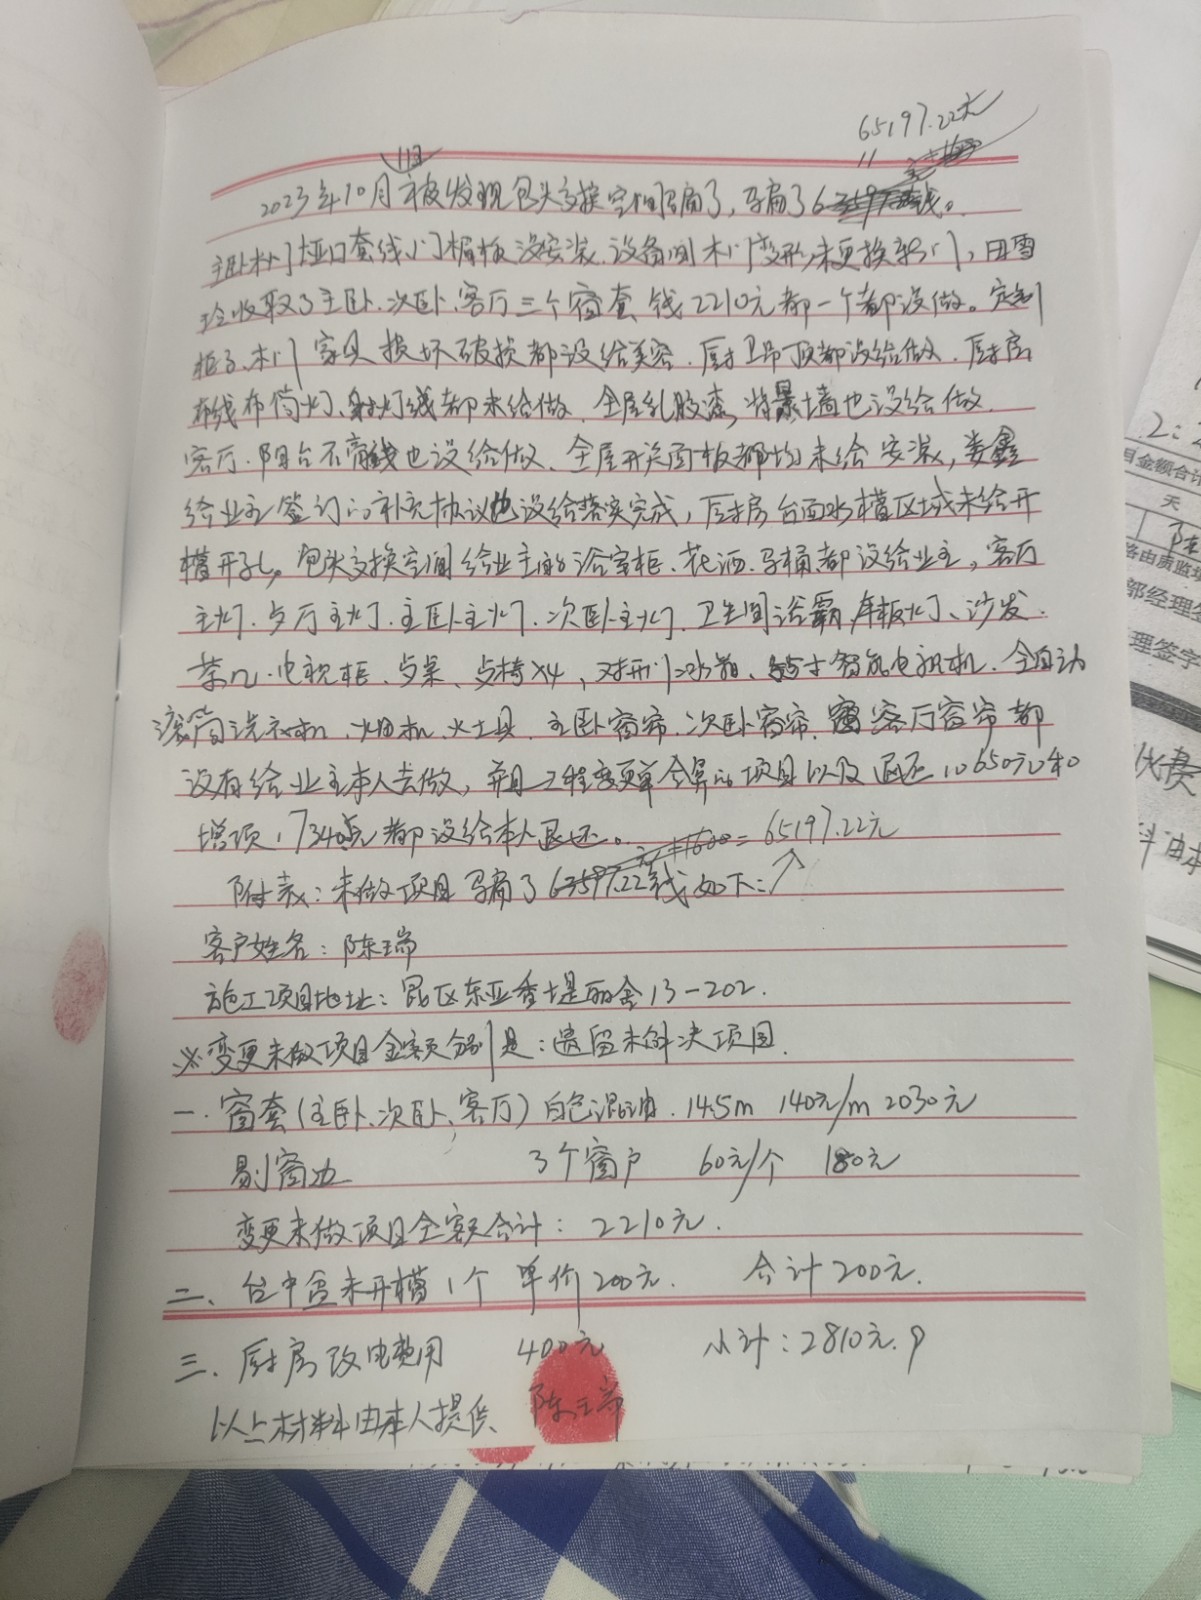 65197.22元
11日
2023年10月被发现包头交换空间骗了，导骗了6
主卧木门垭口套线、门楣板没安装、设备间木门变形未更换新门，田雪
玲收取了主卧、次卧、客厅三个窗套钱2210元都一个都没做。定制
柜子、木门家具损坏破损都没给美容、厨卫吊顶都没给做、厨房
布线布筒灯、射灯线都未给做、全屋乳胶漆、背景墙也没给做、
客厅、阳台石膏线也没给做、全屋开关面板都均未给安装，娄鑫
给业主签订的补充协议也没给落实完成，厨房台面水槽区域未给开
槽开孔。包头交换空间给业主的浴室柜、花洒、马桶都没给业主，客厅
主灯、餐厅主灯、主卧主灯、次卧主灯、卫生间浴霸、平板灯、沙发、
茶几、电视柜、餐桌、餐椅x4，对开门冰箱、智能电视机、全自动
滚筒洗衣机、烟机、灶具、主卧窗帘、次卧窗帘、客厅窗帘都
没有给业主本人去做，并且工程变更单合算的项目以及退还10650元和
增项17340元都没给本人退还。
附表：未做项目导骗了63597.22元+1600=65197.22元 钱如下：
客户姓名：陈瑞
施工项目地址：昆区东亚香堤丽舍13-202.
※变更未做项目金额分别是：遗留未解决项目
一、窗套（主卧、次卧、客厅）白色混油. 14.5m 140元/m 2030元
剔窗边 3个窗户 60元/个 180元
变更未做项目全额合计：2210元.
二、台中盆未开槽1个 单价200元. 合计200元.
三、厨房改电费用 400元 小计：2810元.
以上材料由本人提供 陈瑞
2:
目金额合计
天
陈
皆由质监
部经理签
理签字
伙费
料由本